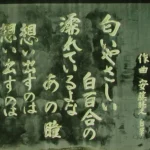 作曲 古賀政男
匂いやさしい
白百合の
濡れているよな
あの瞳
想い出すのは
想い出すのは